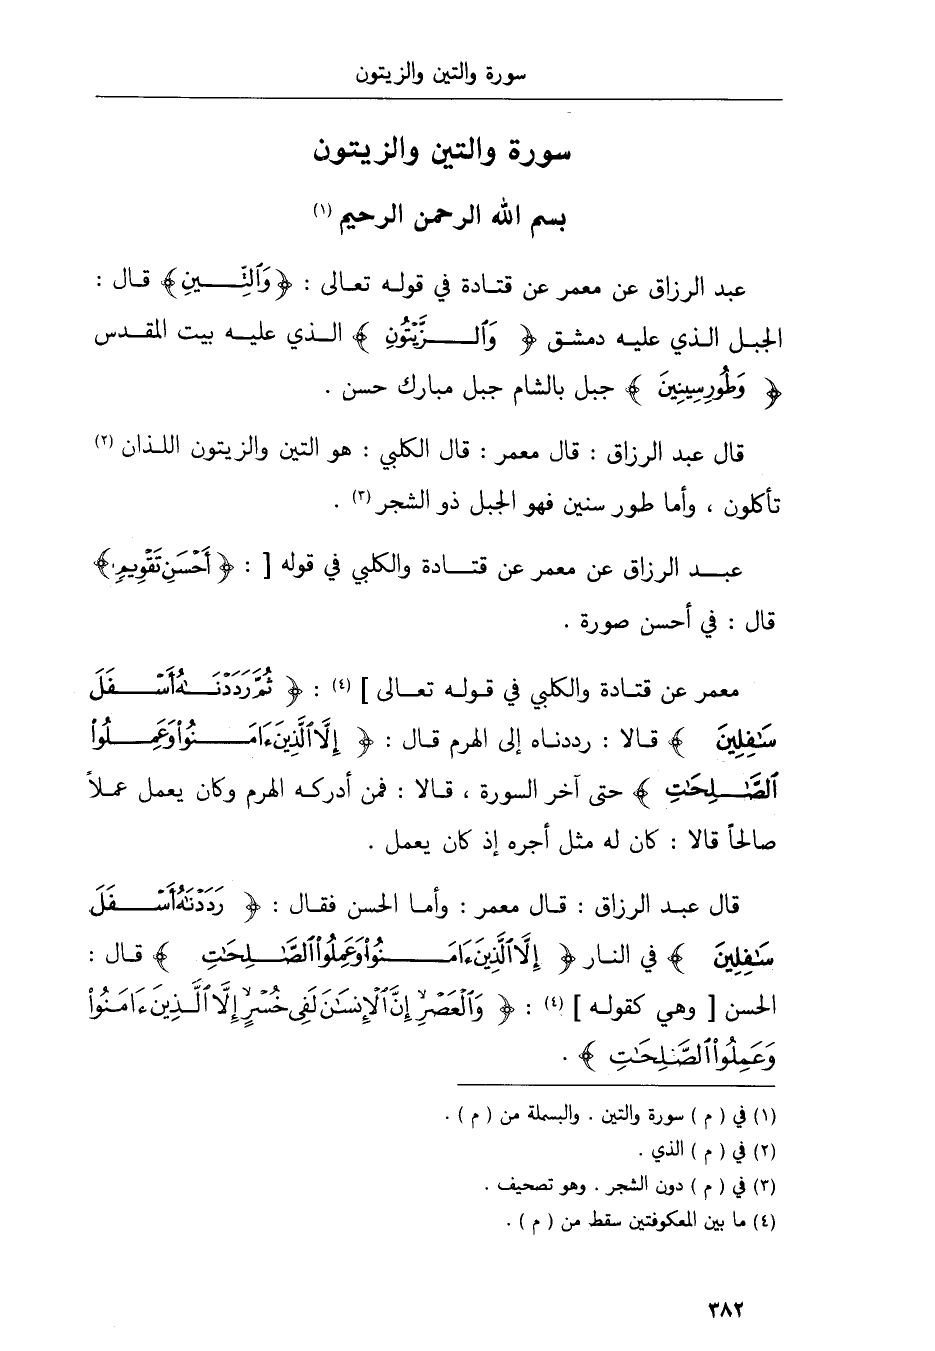 سورة والتين والزيتون
سورة والتين والزيتون
بسم الله الرحمن الرحيم (١)
عبد الرزاق عن معمر عن قتادة في قوله تعالى : ﴿ وَٱلتِّينِ ﴾ قال :
الجبل الذي عليه دمشق ﴿ وَٱلزَّيْتُونِ ﴾ الذي عليه بيت المقدس
﴿ وَطُورِ سِينِينَ ﴾ جبل بالشام جبل مبارك حسن .
قال عبد الرزاق : قال معمر : قال الكلبي : هو التين والزيتون اللذان (٢)
تأكلون ، وأما طور سنين فهو الجبل ذو الشجر (٣) .
عبد الرزاق عن معمر عن قتادة والكلبي في قوله [ : ﴿ أَحْسَنِ تَقْوِيمٍ ﴾
قال : في أحسن صورة .
معمر عن قتادة والكلبي في قوله تعالى ] (٤) : ﴿ ثُمَّ رَدَدْنَٰهُ أَسْفَلَ
سَٰفِلِينَ ﴾ قالا : رددناه إلى الهرم قال : ﴿ إِلَّا ٱلَّذِينَ ءَامَنُوا۟ وَعَمِلُوا۟
ٱلصَّٰلِحَٰتِ ﴾ حتى آخر السورة ، قالا : فمن أدركه الهرم وكان يعمل عملاً
صالحاً قالا : كان له مثل أجره إذ كان يعمل .
قال عبد الرزاق : قال معمر : وأما الحسن فقال : ﴿ رَدَدْنَٰهُ أَسْفَلَ
سَٰفِلِينَ ﴾ في النار ﴿ إِلَّا ٱلَّذِينَ ءَامَنُوا۟ وَعَمِلُوا۟ ٱلصَّٰلِحَٰتِ ﴾ قال :
الحسن [ وهي كقوله ] (٤) : ﴿ وَٱلْعَصْرِ إِنَّ ٱلْإِنسَٰنَ لَفِى خُسْرٍ إِلَّا ٱلَّذِينَ ءَامَنُوا۟
وَعَمِلُوا۟ ٱلصَّٰلِحَٰتِ ﴾ .
(١) في ( م ) سورة والتين . والبسملة من ( م ) .
(٢) في ( م ) الذي .
(٣) في ( م ) دون الشجر . وهو تصحيف .
(٤) ما بين المعكوفتين سقط من ( م ) .
٣٨٢